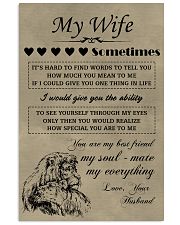 My Wife
Sometimes
IT'S HARD TO FIND WORDS TO TELL YOU
HOW MUCH YOU MEAN TO ME
IF I COULD GIVE YOU ONE THING IN LIFE
I would give you the ability
TO SEE YOURSELF THROUGH MY EYES
ONLY THEN YOU WOULD REALIZE
HOW SPECIAL YOU ARE TO ME
You are my best friend
my soul - mate
my everything
Love, Your
Husband